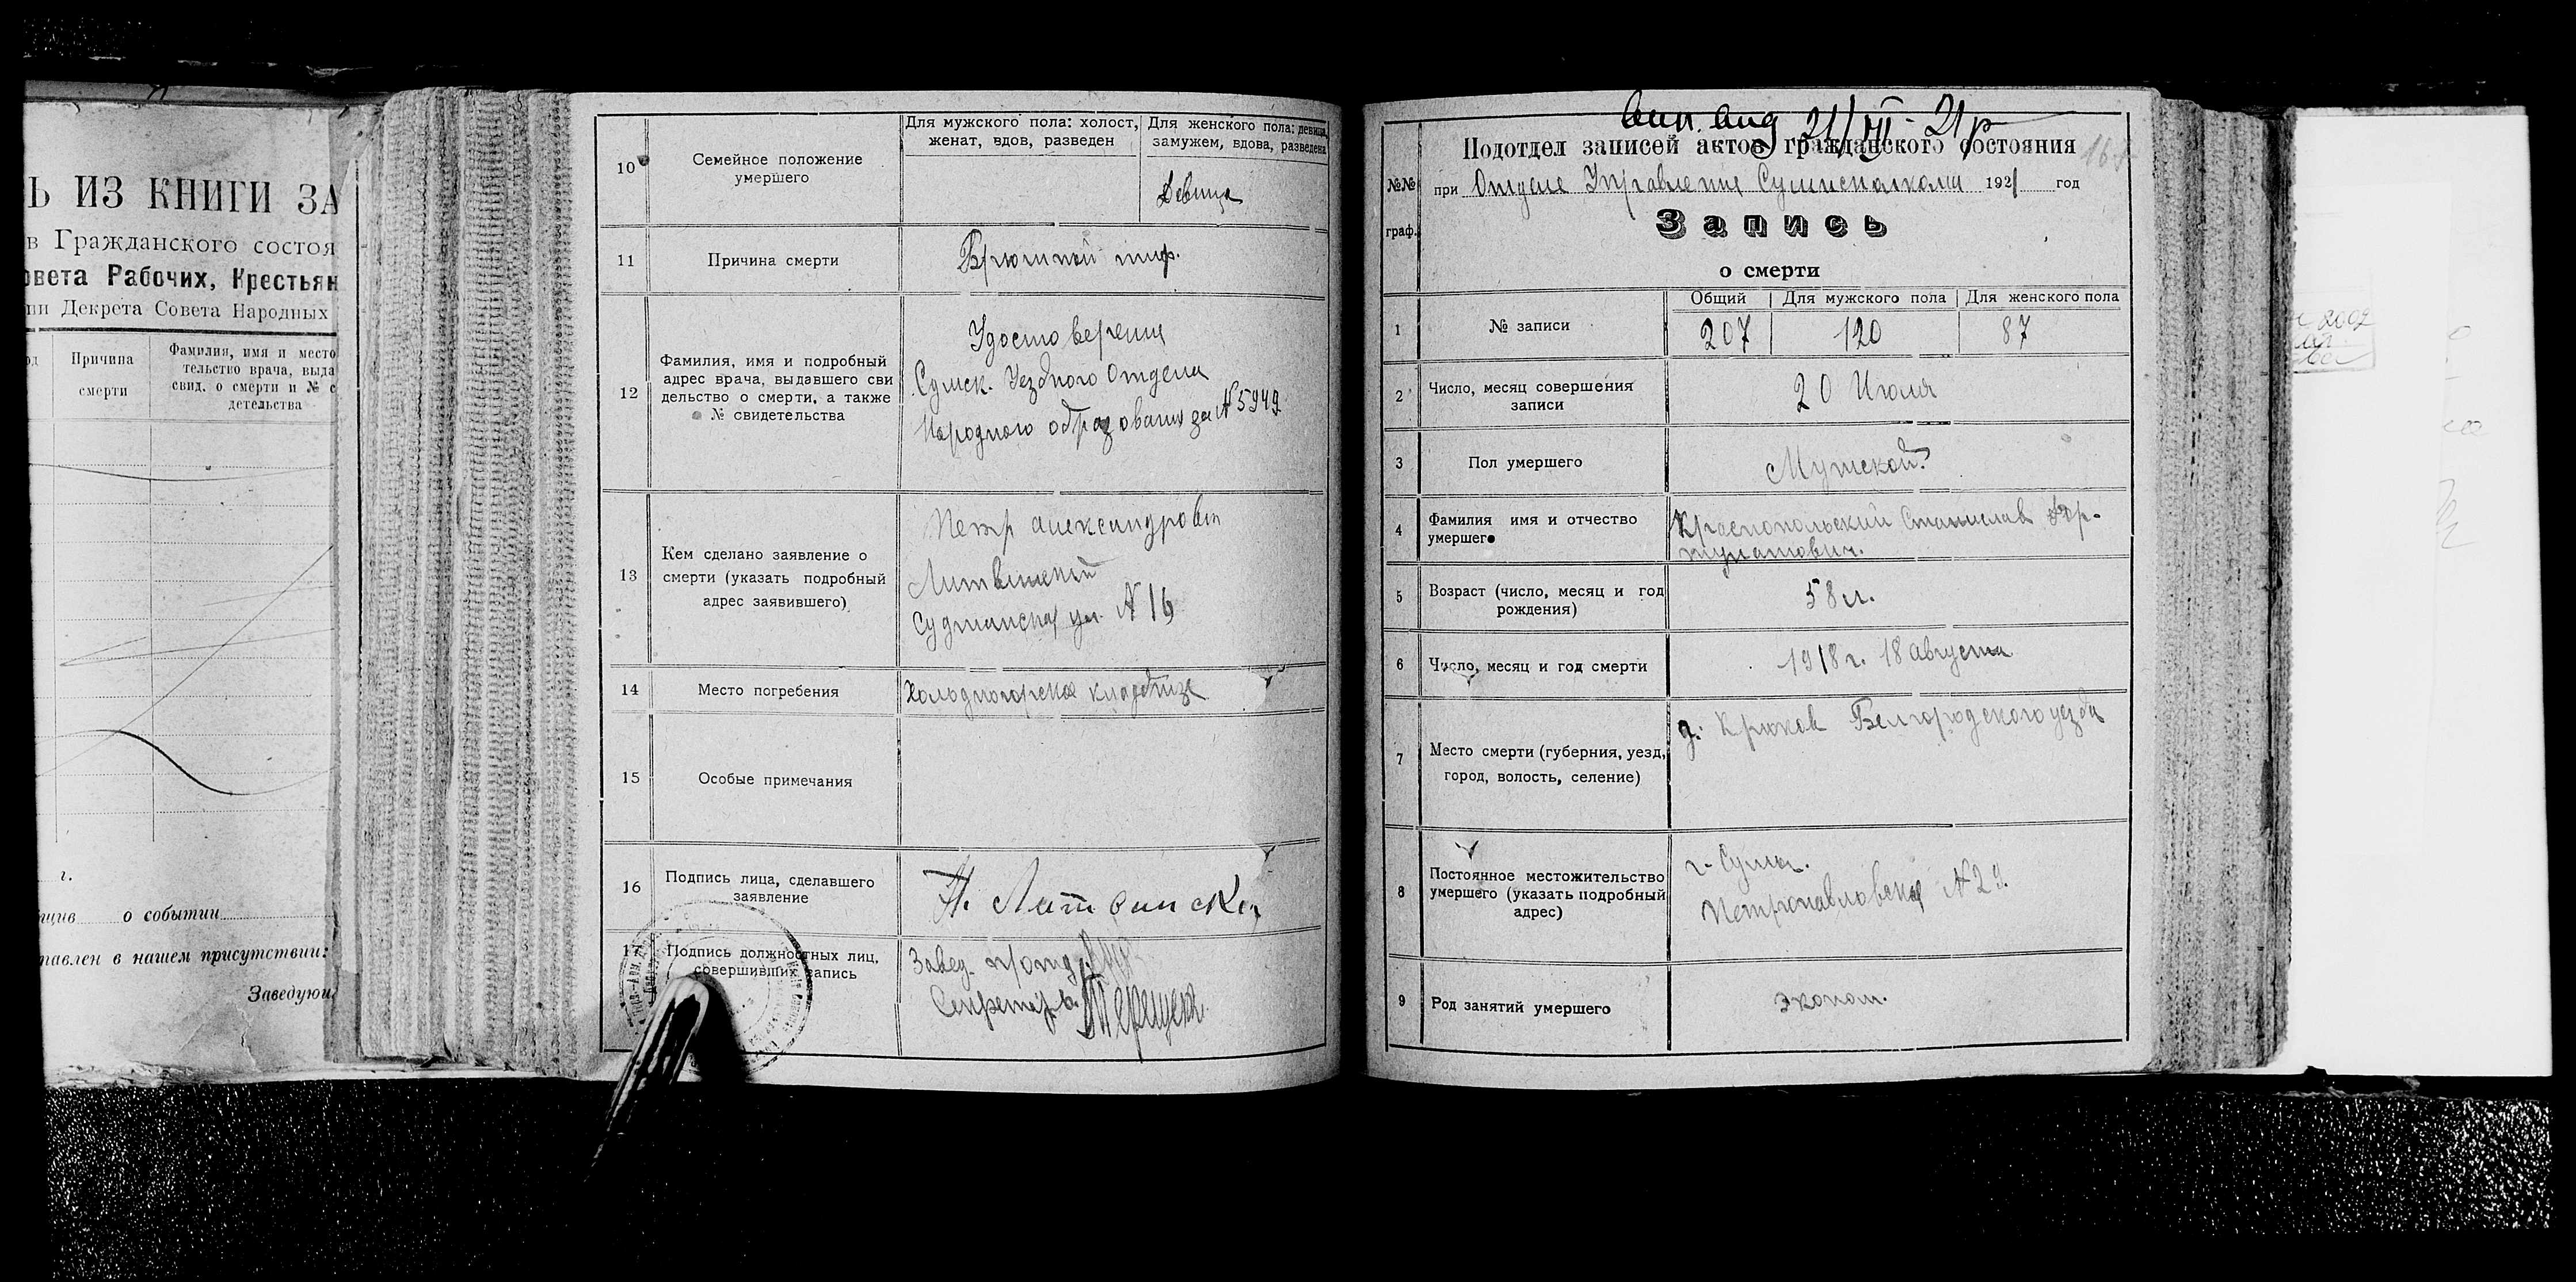 Ь ИЗ КНИГИ ЗА
в Гражданского состоя
овета Рабочих, Крестьян
ии Декрета Совета Народных
Причина
смерти
Фамилия, имя и место
тельство врача, выда
свид. о смерти и № с
детельства
г.
о событии
тавлен в нашем присутствии:
Заведующ
10
Семейное положение
умершего
Для мужского пола: холост,
женат, вдов, разведен
Для женского пола: девица,
замужем, вдова, разведена
Девица
11
Причина смерти
Брюшной тиф.
12
Фамилия, имя и подробный
адрес врача, выдавшего сви
дельство о смерти, а также
№ свидетельства
Удостоверение
Сумск. Уездного Отдела
Народного образования за N 5949
13
Кем сделано заявление о
смерти (указать подробный
адрес заявившего)
Петр Александрович
Литвинский
Суджанская ул. N 16
14
Место погребения
Холодногорское кладбище
15
Особые примечания
16
Подпись лица, сделавшего
заявление
П. Литвинский
17
Подпись должностных лиц,
совершивших запись
Завед. п/отд
Секретарь
21/VII - 21 р
Подотдел записей актов гражданского состояния
№№
граф.
при Отделе Управления Сумисполкома 1921 год
Запись
о смерти
1
№ записи
Общий
Для мужского пола
Для женского пола
207
120
87
2
Число, месяц совершения
записи
20 Июля
3
Пол умершего
Мужской.
4
Фамилия имя и отчество
умершего
Краснопольский Станислав Фор-
тунатович.
5
Возраст (число, месяц и год
рождения)
58 л.
6
Число, месяц и год смерти
1918 г. 18 августа
7
Место смерти (губерния, уезд,
город, волость, селение)
д. Крюков Белгородского уезда
8
Постоянное местожительство
умершего (указать подробный
адрес)
г. Сумы.
Петропавловская N 29.
9
Род занятий умершего
эконом.
2002